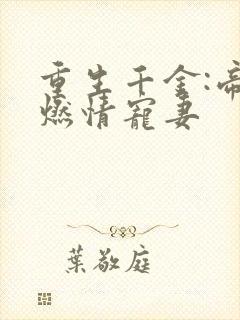 重生千金:帝
燃情寵妻
葉敬庭